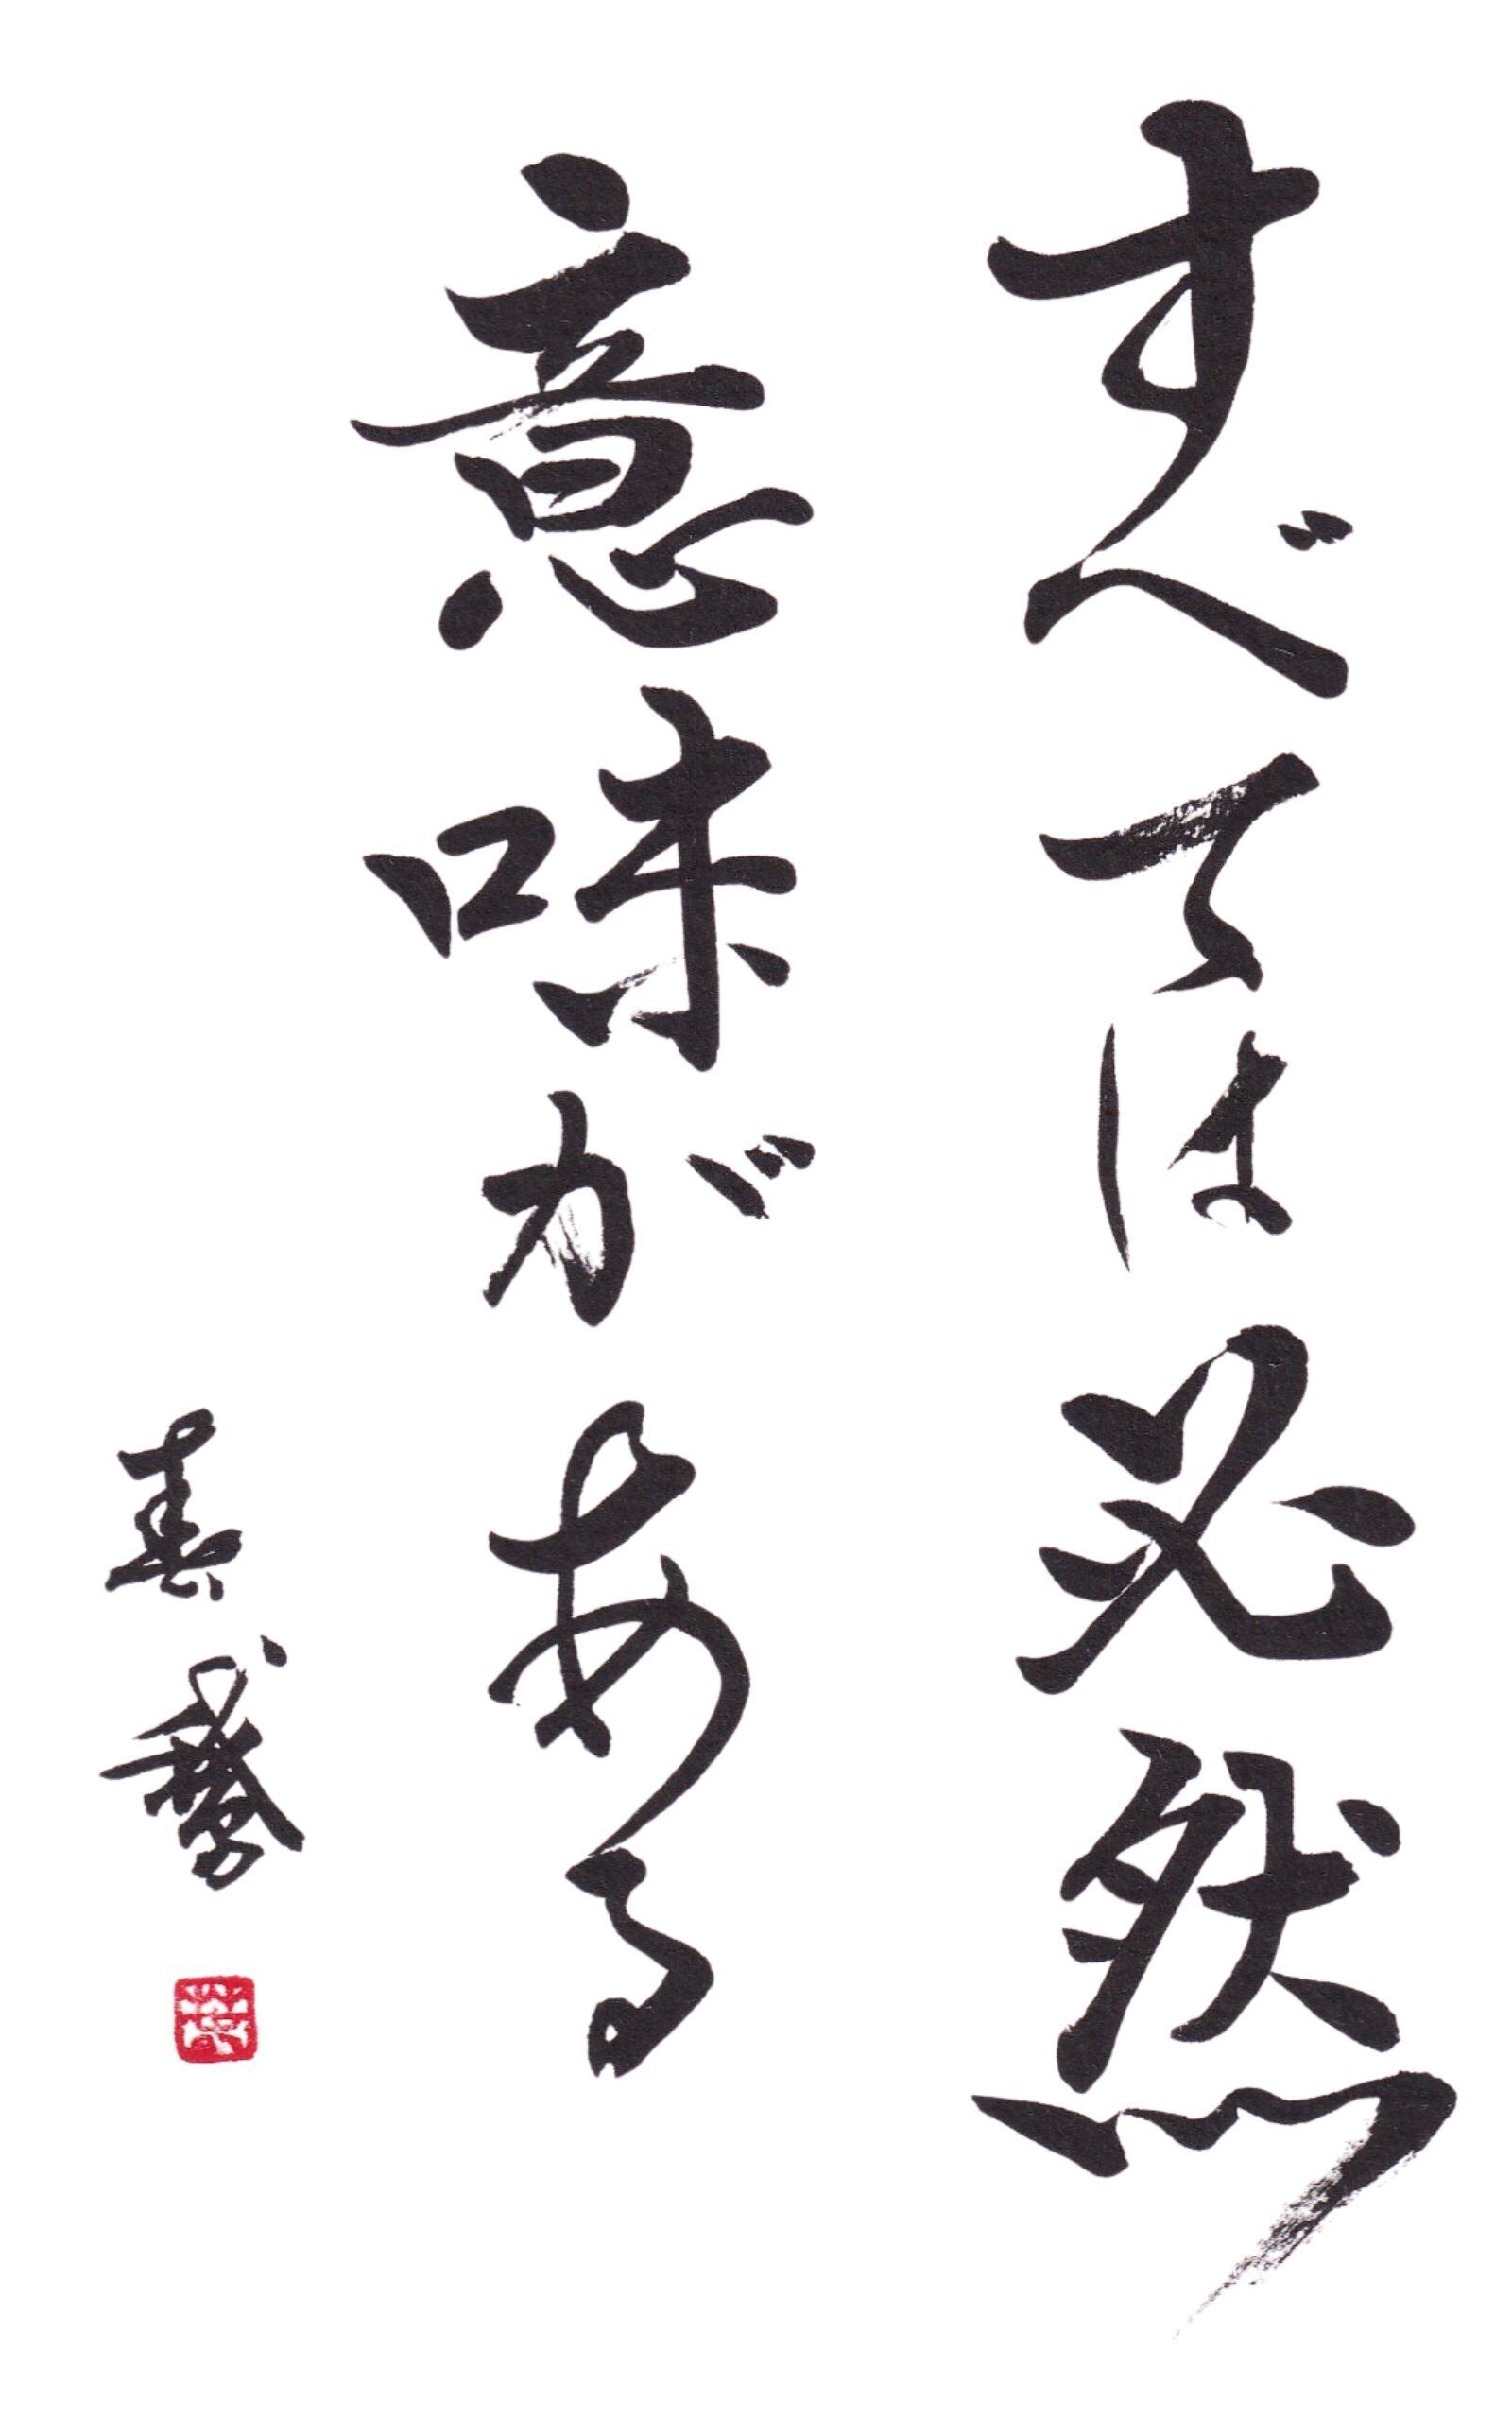 すべては必然
意味がある